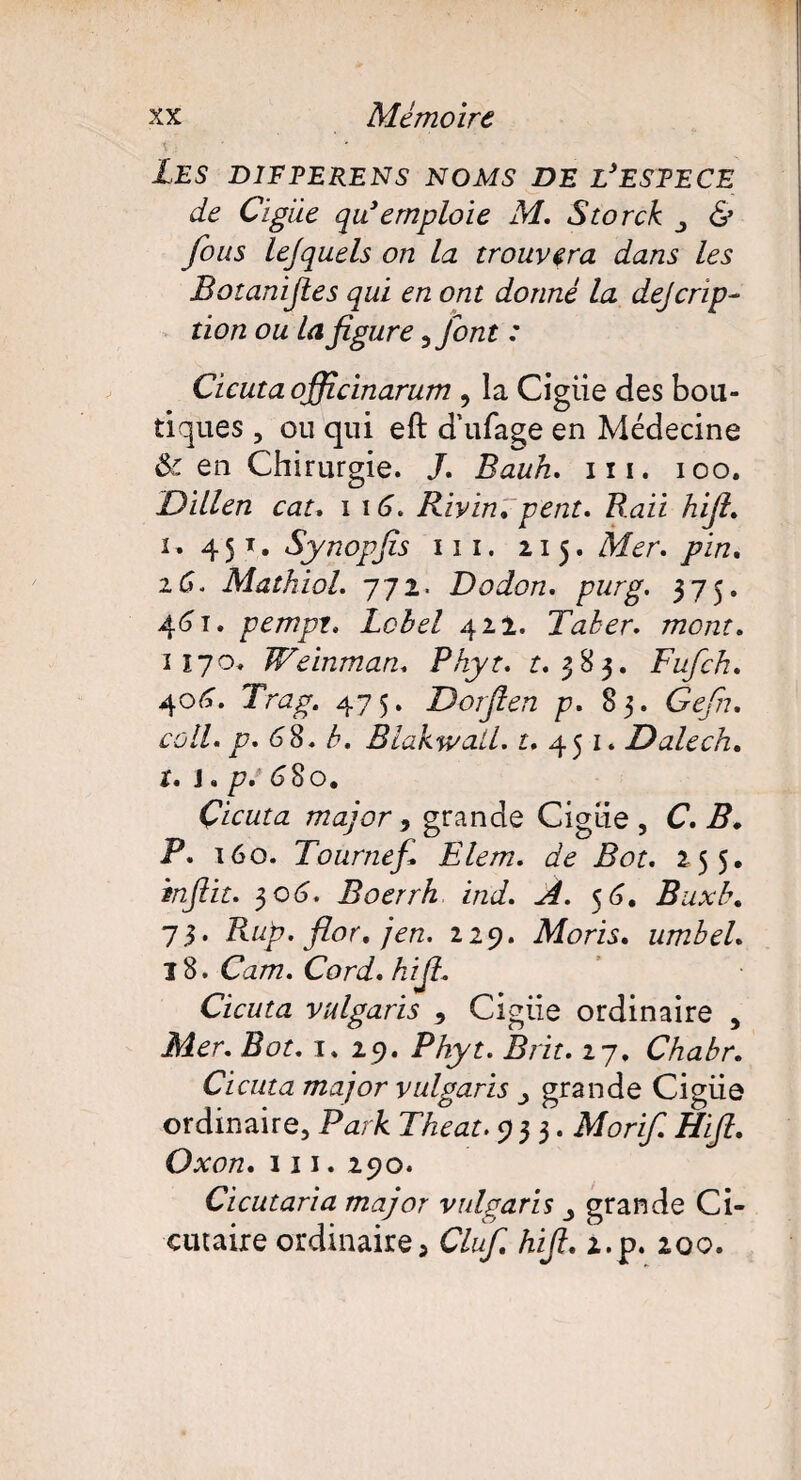 xx Mémoire
LES DIFFERENS NOMS DE L'ESPECE
de Cigüe qu'emploie M. Storck, &
ſous leſquels on la trouvera dans les
Botaniſtes qui en ont donné la deſcrip-
tion ou la figure, ſont :
Cicuta officinarum, la Cigüe des bou-
tiques, ou qui eſt d'uſage en Médecine
& en Chirurgie. J. Bauh. 111. 100.
Dillen cat. 116. Rivin. pent. Raii hiſt.
1. 451. Synopſis 111. 215. Mer. pin.
26. Mathiol. 772. Dodon. purg. 375.
461. pempt. Lobel 422. Taber. mont.
1170. Weinman. Phyt. t. 383. Fuſch.
406. Trag. 475. Dorſten p. 83. Geſn.
coll. p. 68. b. Blakwall. t. 451. Dalech.
t. 1. p. 680.
Cicuta major, grande Cigüe, C. B.
P. 160. Tournef. Elem. de Bot. 255.
inſtit. 306. Boerrh. ind. A. 56. Buxb.
73. Rup. flor. jen. 229. Moris. umbel.
18. Cam. Cord. hiſt.
Cicuta vulgaris, Cigüe ordinaire,
Mer. Bot. 1. 29. Phyt. Brit. 27. Chabr.
Cicuta major vulgaris, grande Cigüe
ordinaire, Park Theat. 933. Moriſ. Hiſt.
Oxon. 111. 290.
Cicutaria major vulgaris, grande Ci-
cutaire ordinaire, Cluſ. hiſt. 2. p. 200.